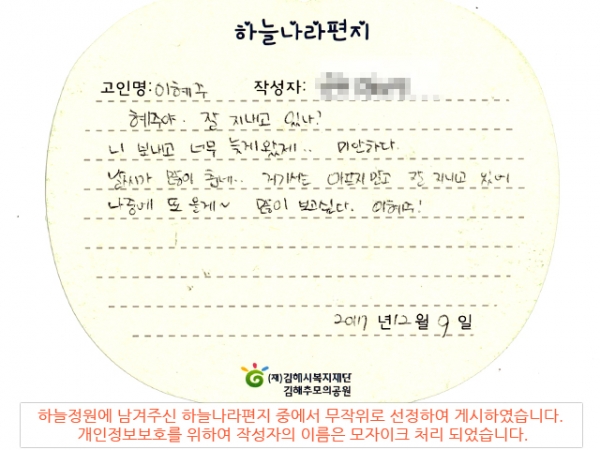 하늘나라편지
고인명: 이혜주 작성자:
혜주야. 잘 지내고 있나?
니 보내고 너무 늦게왔제.. 미안하다.
날씨가 많이 춥네.. 거기서는 아프지말고 잘 지내고 있어
나중에 또 올게~ 많이 보고싶다. 이혜주!
2017년 12월 9일
(재)김해시복지재단
김해추모의공원
하늘정원에 남겨주신 하늘나라편지 중에서 무작위로 선정하여 게시하였습니다.
개인정보보호를 위하여 작성자의 이름은 모자이크 처리 되었습니다.